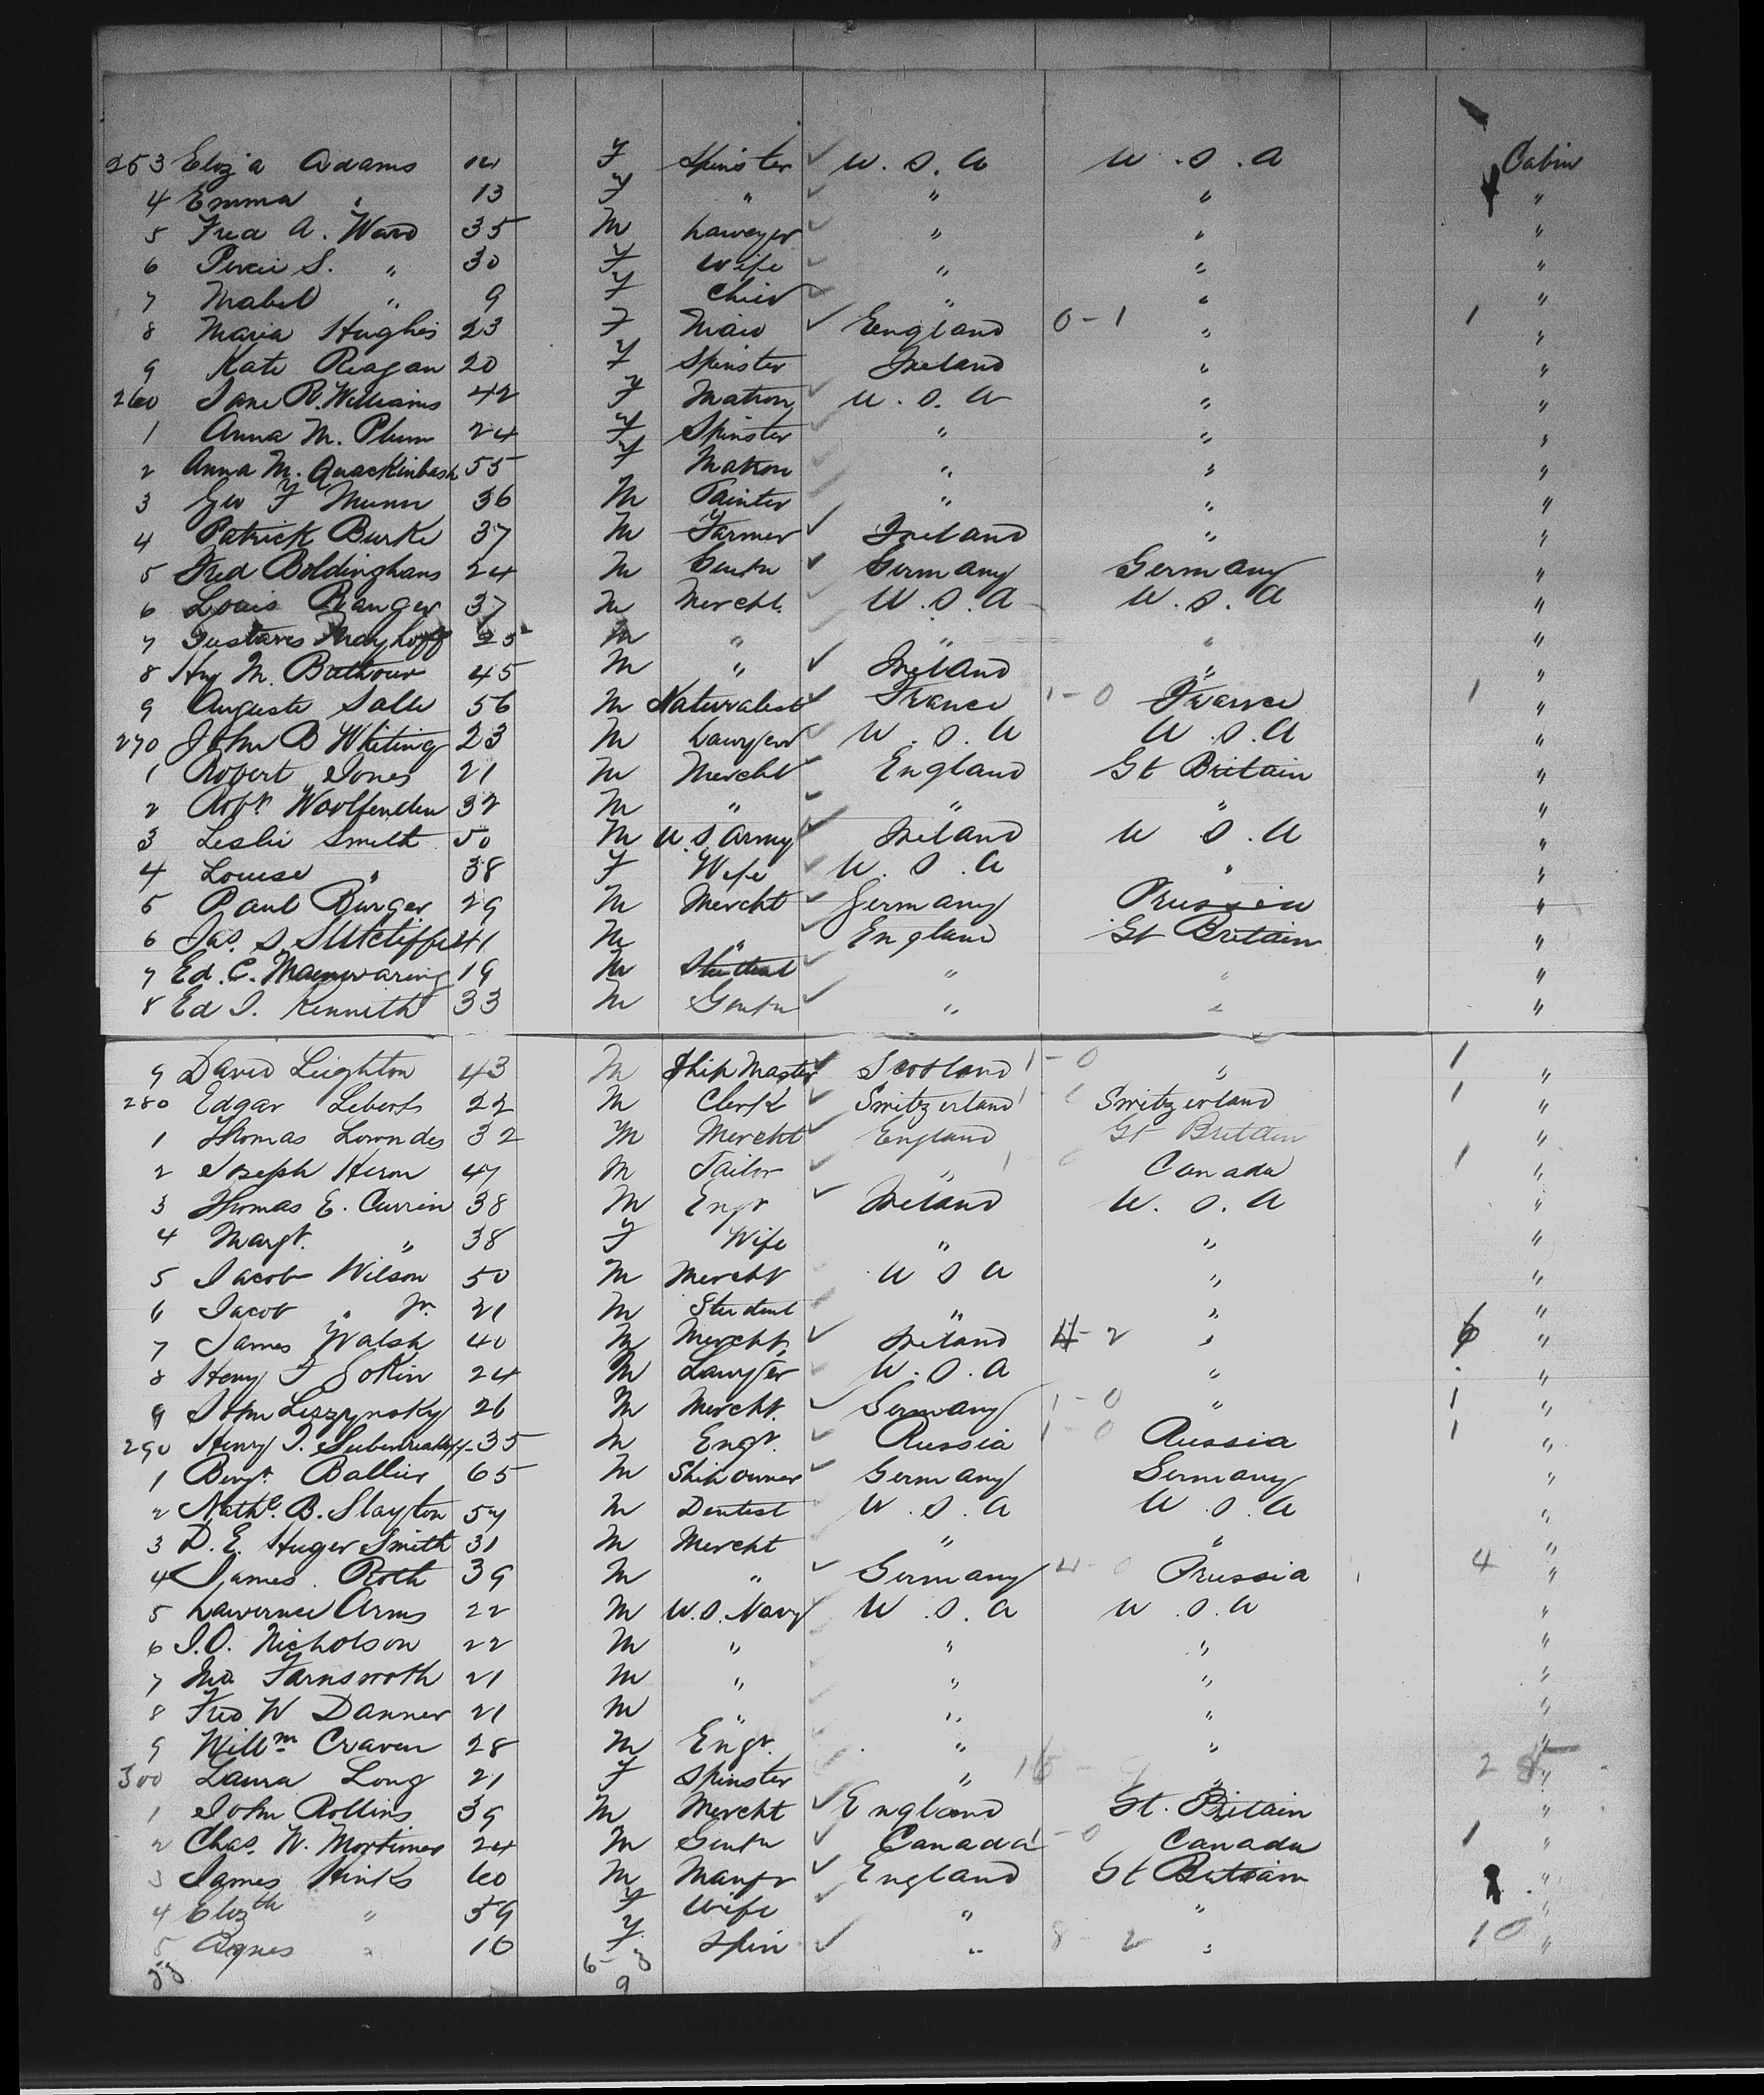 253 Eliza Adams 14 F Spinster ✓ U.S.A U.S.A Cabin
4 Emma " 13 F " ✓ " " "
5 Fred A. Ward 35 M Lawyer ✓ " " "
6 S. " 30 F Wife ✓ " " "
7 Mabel " 9 F Child ✓ " " "
8 Maria Hughes 23 F Maid ✓ England 0-1 " 1 "
9 Kate Reagan 20 F Spinster Ireland " "
260 Jane R. Williams 42 F Matron ✓ U.S.A " "
1 Anna M. Plum 24 F Spinster ✓ " " "
2 Anna M. Quackinbash 55 F Matron ✓ " " "
3 Geo F Munn 36 M Painter ✓ " " "
4 Patrick Burke 37 M Farmer ✓ Ireland " "
5 Fred Boldinghans 24 M Gentn ✓ Germany Germany "
6 Louis Ranger 37 M Mercht. ✓ U.S.A U.S.A "
7 Gustaves Mayhoff 25 M " " " "
8 Hy M. 45 M " ✓ Ireland " "
9 Auguste Salle 56 M Naturalist ✓ France 1-0 France 1 "
270 John B Whiting 23 M Lawyer ✓ U.S.A U.S.A "
1 Robert Jones 21 M Mercht ✓ England Gt Britain "
2 Robt. Woolfenden 32 M " ✓ " " "
3 Leslie Smith 50 M U.S. Army ✓ Ireland U S.A "
4 Louise " 38 F Wife ✓ U.S.A " "
5 Paul Burger 29 M Mercht ✓ Germany Prussia "
6 Jas. S Sutcliffe 41 M " ✓ England Gt Britain "
7 Ed. C. Mainwaring 19 M Student ✓ " " "
8 Ed I. Kenneth 33 M Gentn ✓ " " "
9 David Leighton 43 M Ship Master ✓ Scotland 1-0 " 1 "
280 Edgar 22 M Clerk ✓ Switzerland 1 0 Switzerland 1 "
1 Thomas Lowndes 32 M Mercht ✓ England Gt Britain "
2 Joseph Heron 47 M Tailor ✓ " 1 0 Canada 1 "
3 Thomas E. Currin 38 M Engr ✓ Ireland U.S.A "
4 Margt. " 38 F Wife " " "
5 Jacob Wilson 50 M Mercht ✓ U S A " "
6 Jacob " Jr. 21 M Student ✓ " " "
7 James Walsh 40 M Mercht. ✓ Ireland 4-2 " 6 "
8 Henry F 24 M Lawyer ✓ U.S.A " "
9 John 26 M Mercht. ✓ Germany 1-0 " 1 "
290 Henry 35 M Engr. ✓ Russia 1-0 Russia 1 "
1 Benjn. Ballier 65 M Ship owner ✓ Germany Germany "
2 Nathl. B. Slayton 54 M Dentist ✓ U.S.A U.S.A "
3 D. E. Huger Smith 31 M Mercht ✓ " " "
4 James Roth 39 M " ✓ Germany 4-0 Prussia 4 "
5 Lawrence Arms 22 M U.S. Navy ✓ U.S.A U.S.A "
6 J.O. Nicholson 22 M " " " "
7 Jno Farnsworth 21 M " " " "
8 Fred W Danner 21 M " " " "
9 Willm Craven 28 M Engr. ✓ " " "
300 Laura Long 21 F Spinster ✓ " 16 - 9 " 25 "
1 John Rollins 39 M Mercht ✓ England Gt. Britain "
2 Chas. W. Mortimer 24 M Gentn ✓ Canada 1-0 Canada 1 "
3 James Hinks 60 M Manfr ✓ England Gt Britain "
4 Elizth " 59 F Wife ✓ " " "
5 Agnes " 16 F Spin ✓ " 8 - 2 " 10 "